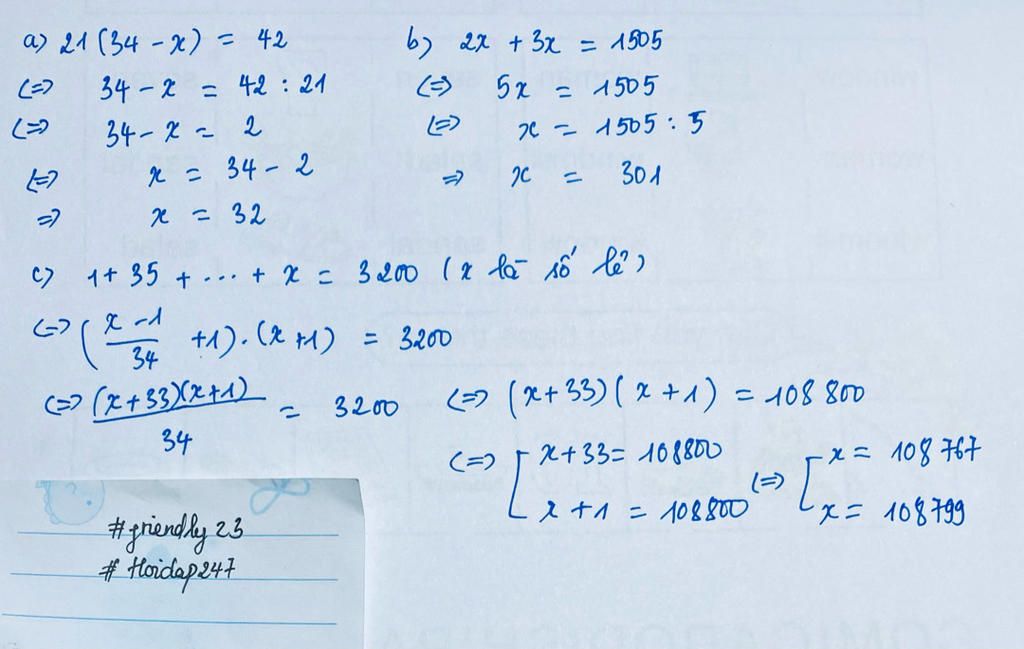 a) 21(34 - x) = 42
(=) 34 - x = 42 : 21
(=) 34 - x = 2
(=) x = 34 - 2
=) x = 32
b) 2x + 3x = 1505
(=) 5x = 1505
(=) x = 1505 : 5
=) x = 301
c) 1 + 35 + ... + x = 3200 (x là số lẻ)
(=) (x - 1 / 34 + 1) . (x + 1) = 3200
(=) (x + 33)(x + 1) / 34 = 3200
(=) (x + 33)(x + 1) = 108 800
(=) [ x + 33 = 108800 (=) [ x = 108 767
x + 1 = 108800 x = 108 799
#friendly 23
# Hoidap247